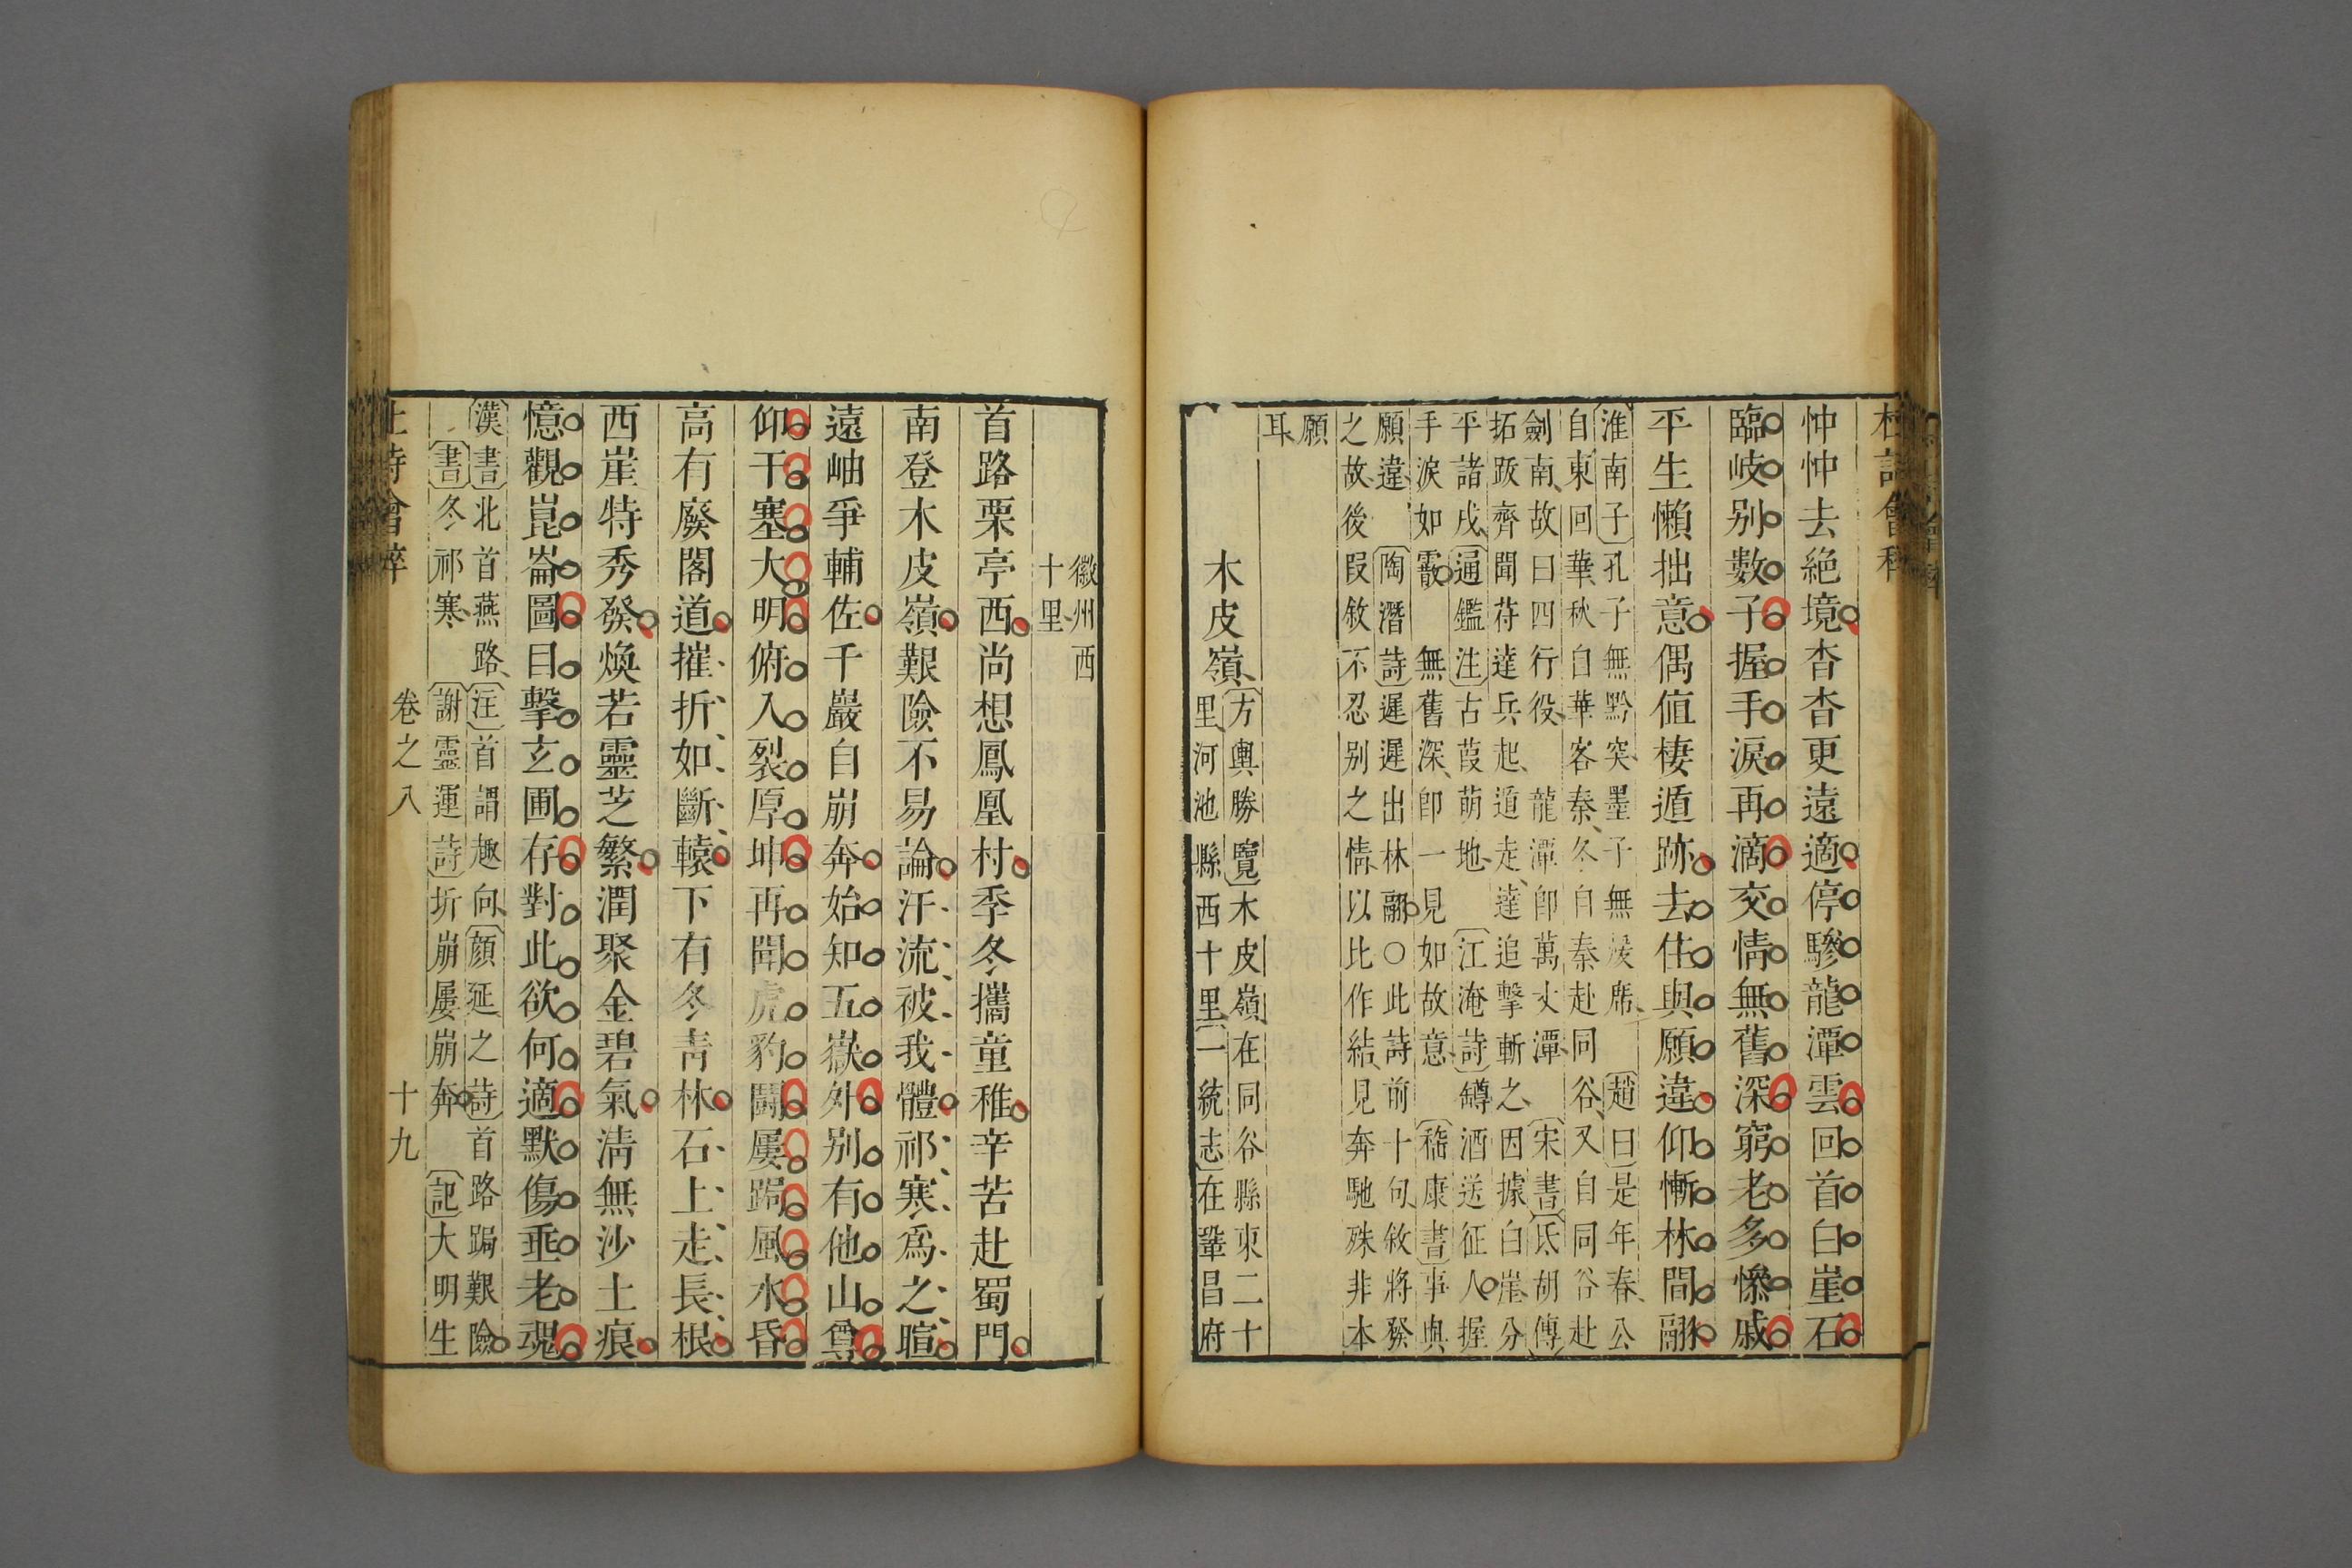 杜詩會稡
忡忡去絕境杳杳更遠適停驂龍潭雲回首白崖石
臨岐別數子握手淚再滴交情無舊深窮老多慘戚
平生懶拙意偶值棲遁跡去住與願違仰慚林間翮
淮南子孔子無黔突墨子無煖席 趙曰是年春公
自東回華秋自華客秦冬自秦赴同谷又自同谷赴
劍南故曰四行役 龍潭卽萬丈潭 宋書氐胡傳
拓跋齊聞苻達兵起遁走達追擊斬之因據白崖分
平諸戍通鑑注古葭萌地江淹詩罇酒送征人握
手淚如霰 無舊深卽一見如故意 嵇康書事與
願違 陶潛詩遲遲出林翮○此詩前十句敘將發
之故後叚敘不忍別之情以比作結見奔馳殊非本
願
耳
木皮嶺
方輿勝覽木皮嶺在同谷縣東二十
里河池縣西十里一統志在鞏昌府
徽州西
十里
首路栗亭西尚想鳳凰村季冬攜童稚辛苦赴蜀門
南登木皮嶺艱險不易論汗流被我體祁寒爲之暄
遠岫爭輔佐千巖自崩奔始知五嶽外別有他山尊
仰干塞大明俯入裂厚坤再聞虎豹鬬屢跼風水昏
高有廢閣道摧折如斷轅下有冬青林石上走長根
西崖特秀發煥若靈芝繁潤聚金碧氣清無沙土痕
憶觀崑崙圖目擊玄圃存對此欲何適默傷垂老魂
漢書北首燕路注首謂趣向顏延之詩首路跼艱險
書冬祁寒 謝靈運詩圻崩屢崩奔 記大明生
杜詩會稡 卷之八 十九